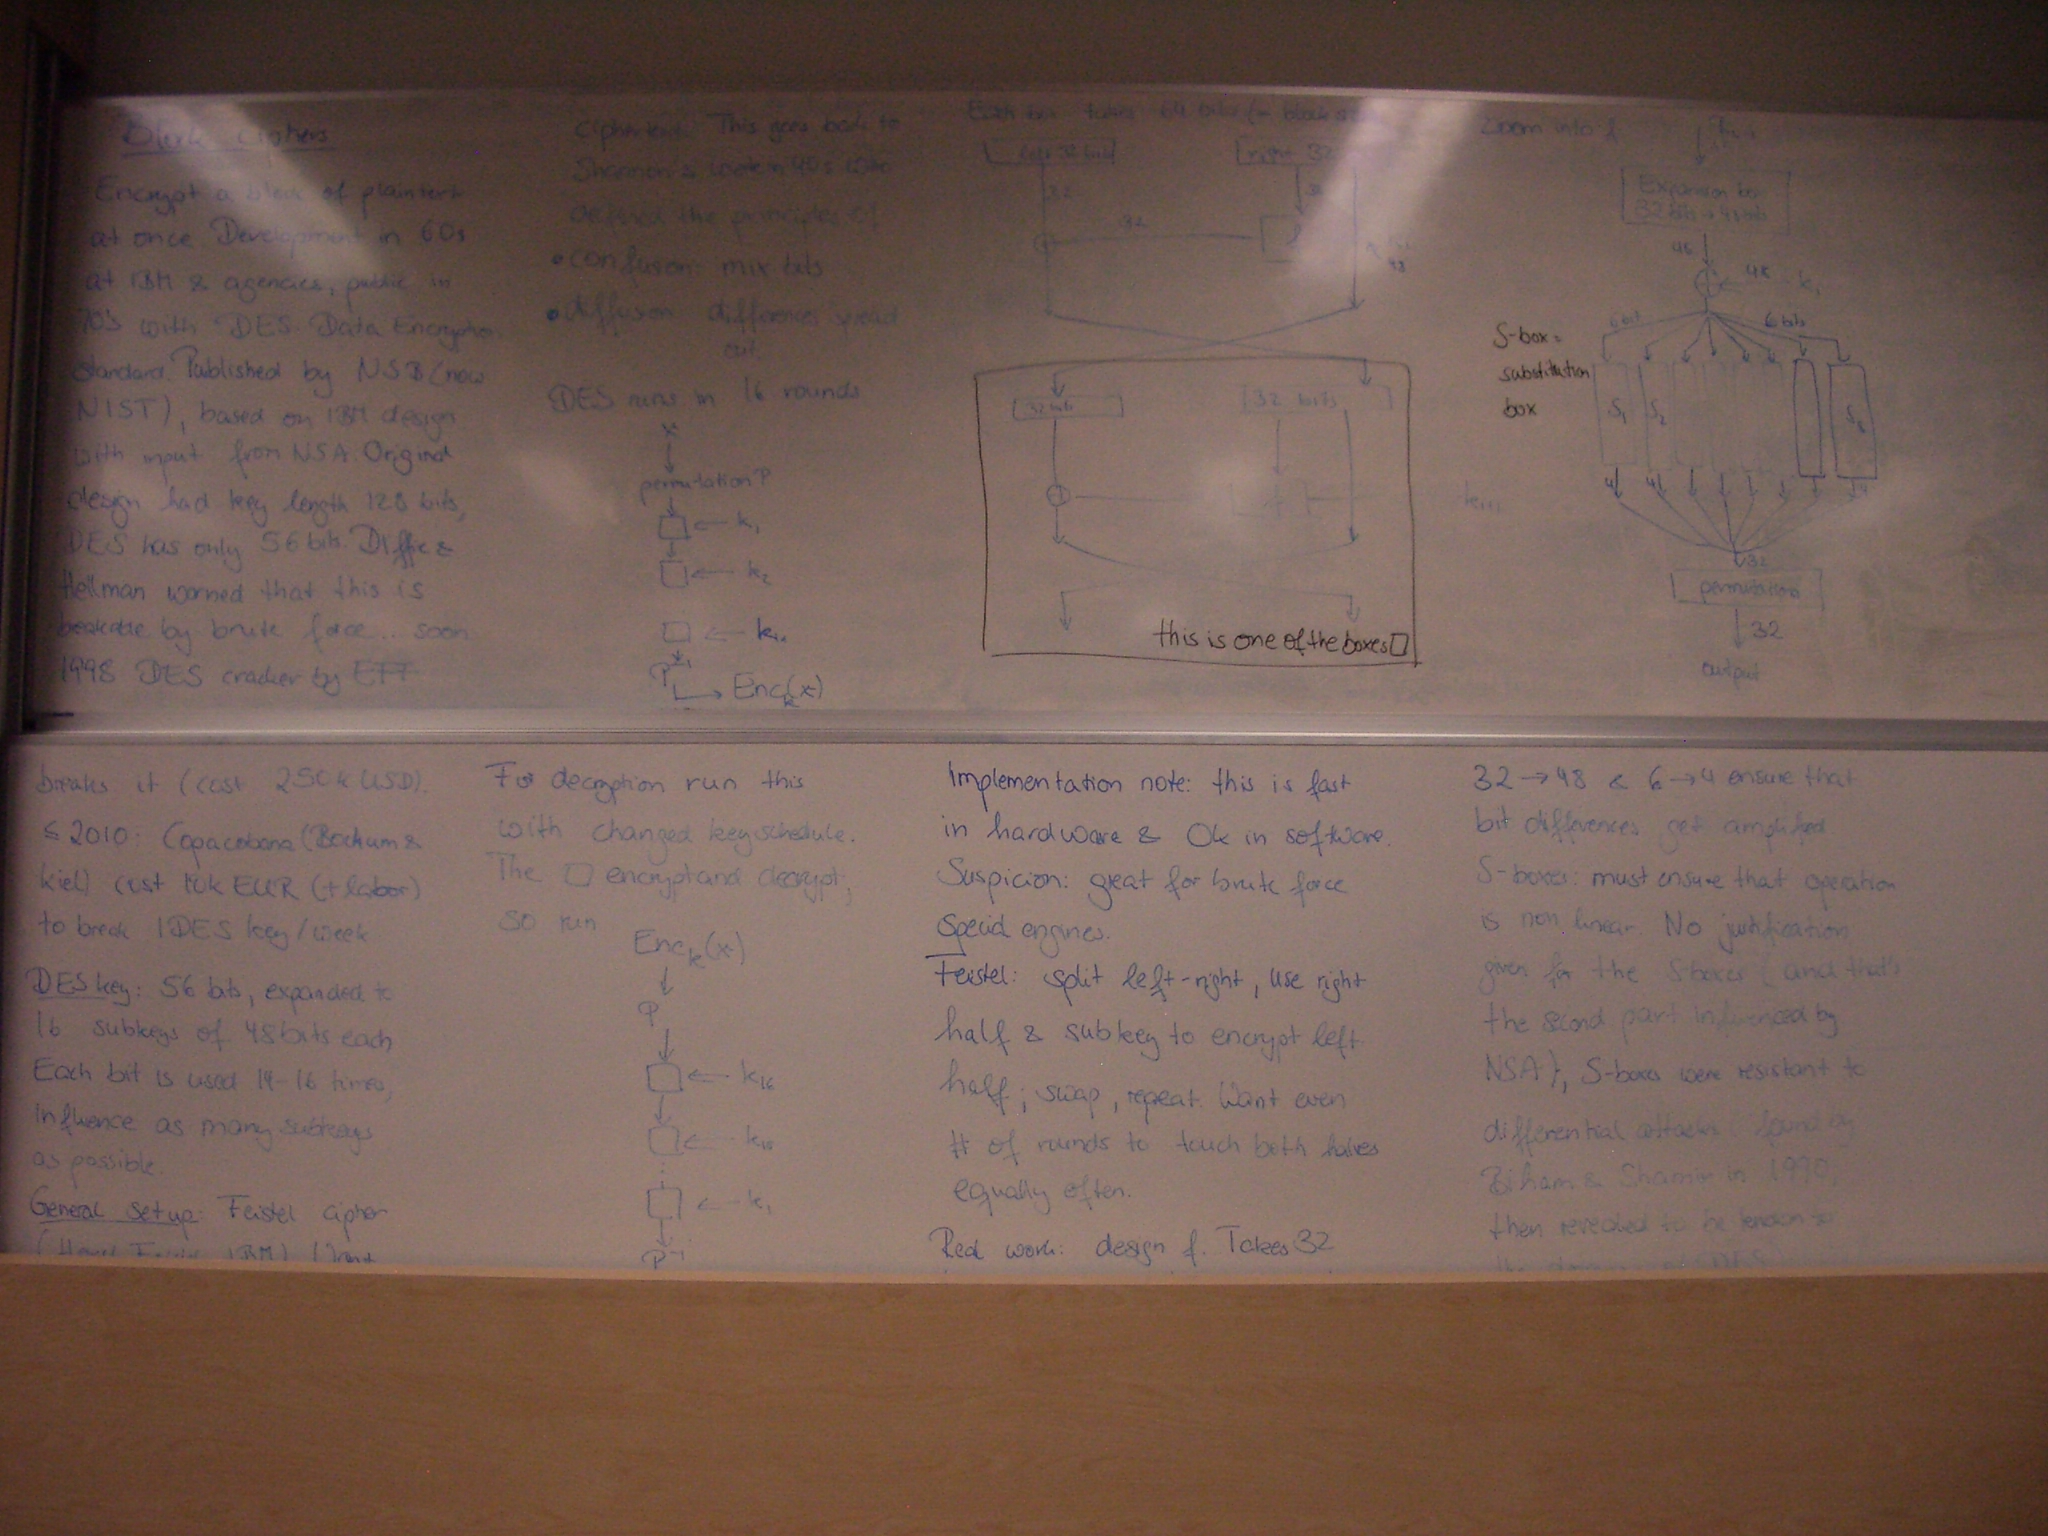 Block ciphers
Encrypt a block of plaintext
at once. Development in 60s
at IBM & agencies, public in
70s with DES Data Encryption
Standard. Published by NSB (now
NIST), based on IBM design
with input from NSA. Original
design had key length 128 bits,
DES has only 56 bits. Diffie &
Hellman worried that this is
breakable by brute force... soon
1998 DES cracker by EFF
breaks it (cost 250k USD).
≤ 2010: Copacobana (Bochum &
Kiel) cost 10k EUR (+ labor)
to break 1 DES key/week
DES key: 56 bits, expanded to
16 subkeys of 48 bits each
Each bit is used 14-16 times,
influence as many subkeys
as possible.
General setup: Feistel cipher
IBM)
ciphertext. This goes back to
Shannon's work in 40s who
defined the principles of
• confusion: mix bits
• diffusion: differences spread
out
DES runs in 16 rounds
x
permutation P
□ ← k₁
□ ← k₂
□ ← k₁₆
P⁻¹
→ Enc_k(x)
For decryption run this
with changed key schedule.
The □ encrypt and decrypt,
so run
Enc_k(x)
P
□ ← k₁₆
□ ← k₁₅
□ ← k₁
P⁻¹
Each box takes 64 bits (= block
left 32 bit
right 32
32
32
48
32 bits
32 bits
this is one of the boxes □
Implementation note: this is fast
in hardware & Ok in software.
Suspicion: great for brute force
special engines.
Feistel: split left-right, use right
half & subkey to encrypt left
half; swap, repeat. Want even
# of rounds to touch both halves
equally often.
Real work: design f. Takes 32
Zoom into f
Expansion box
32 bits → 48 bits
48
48
kᵢ
6 bit
6 bits
S-box =
substitution
box
S₁ S₂ S₈
4 4 4
32
permutation
32
output
kᵢ₊₁
32 → 48 & 6 → 4 ensure that
bit differences get amplified
S-boxes: must ensure that operation
is non linear. No justification
given for the S boxes (and that's
the second part influenced by
NSA), S-boxes were resistant to
differential attacks found by
Biham & Shamir in 1990,
then revealed to be known to